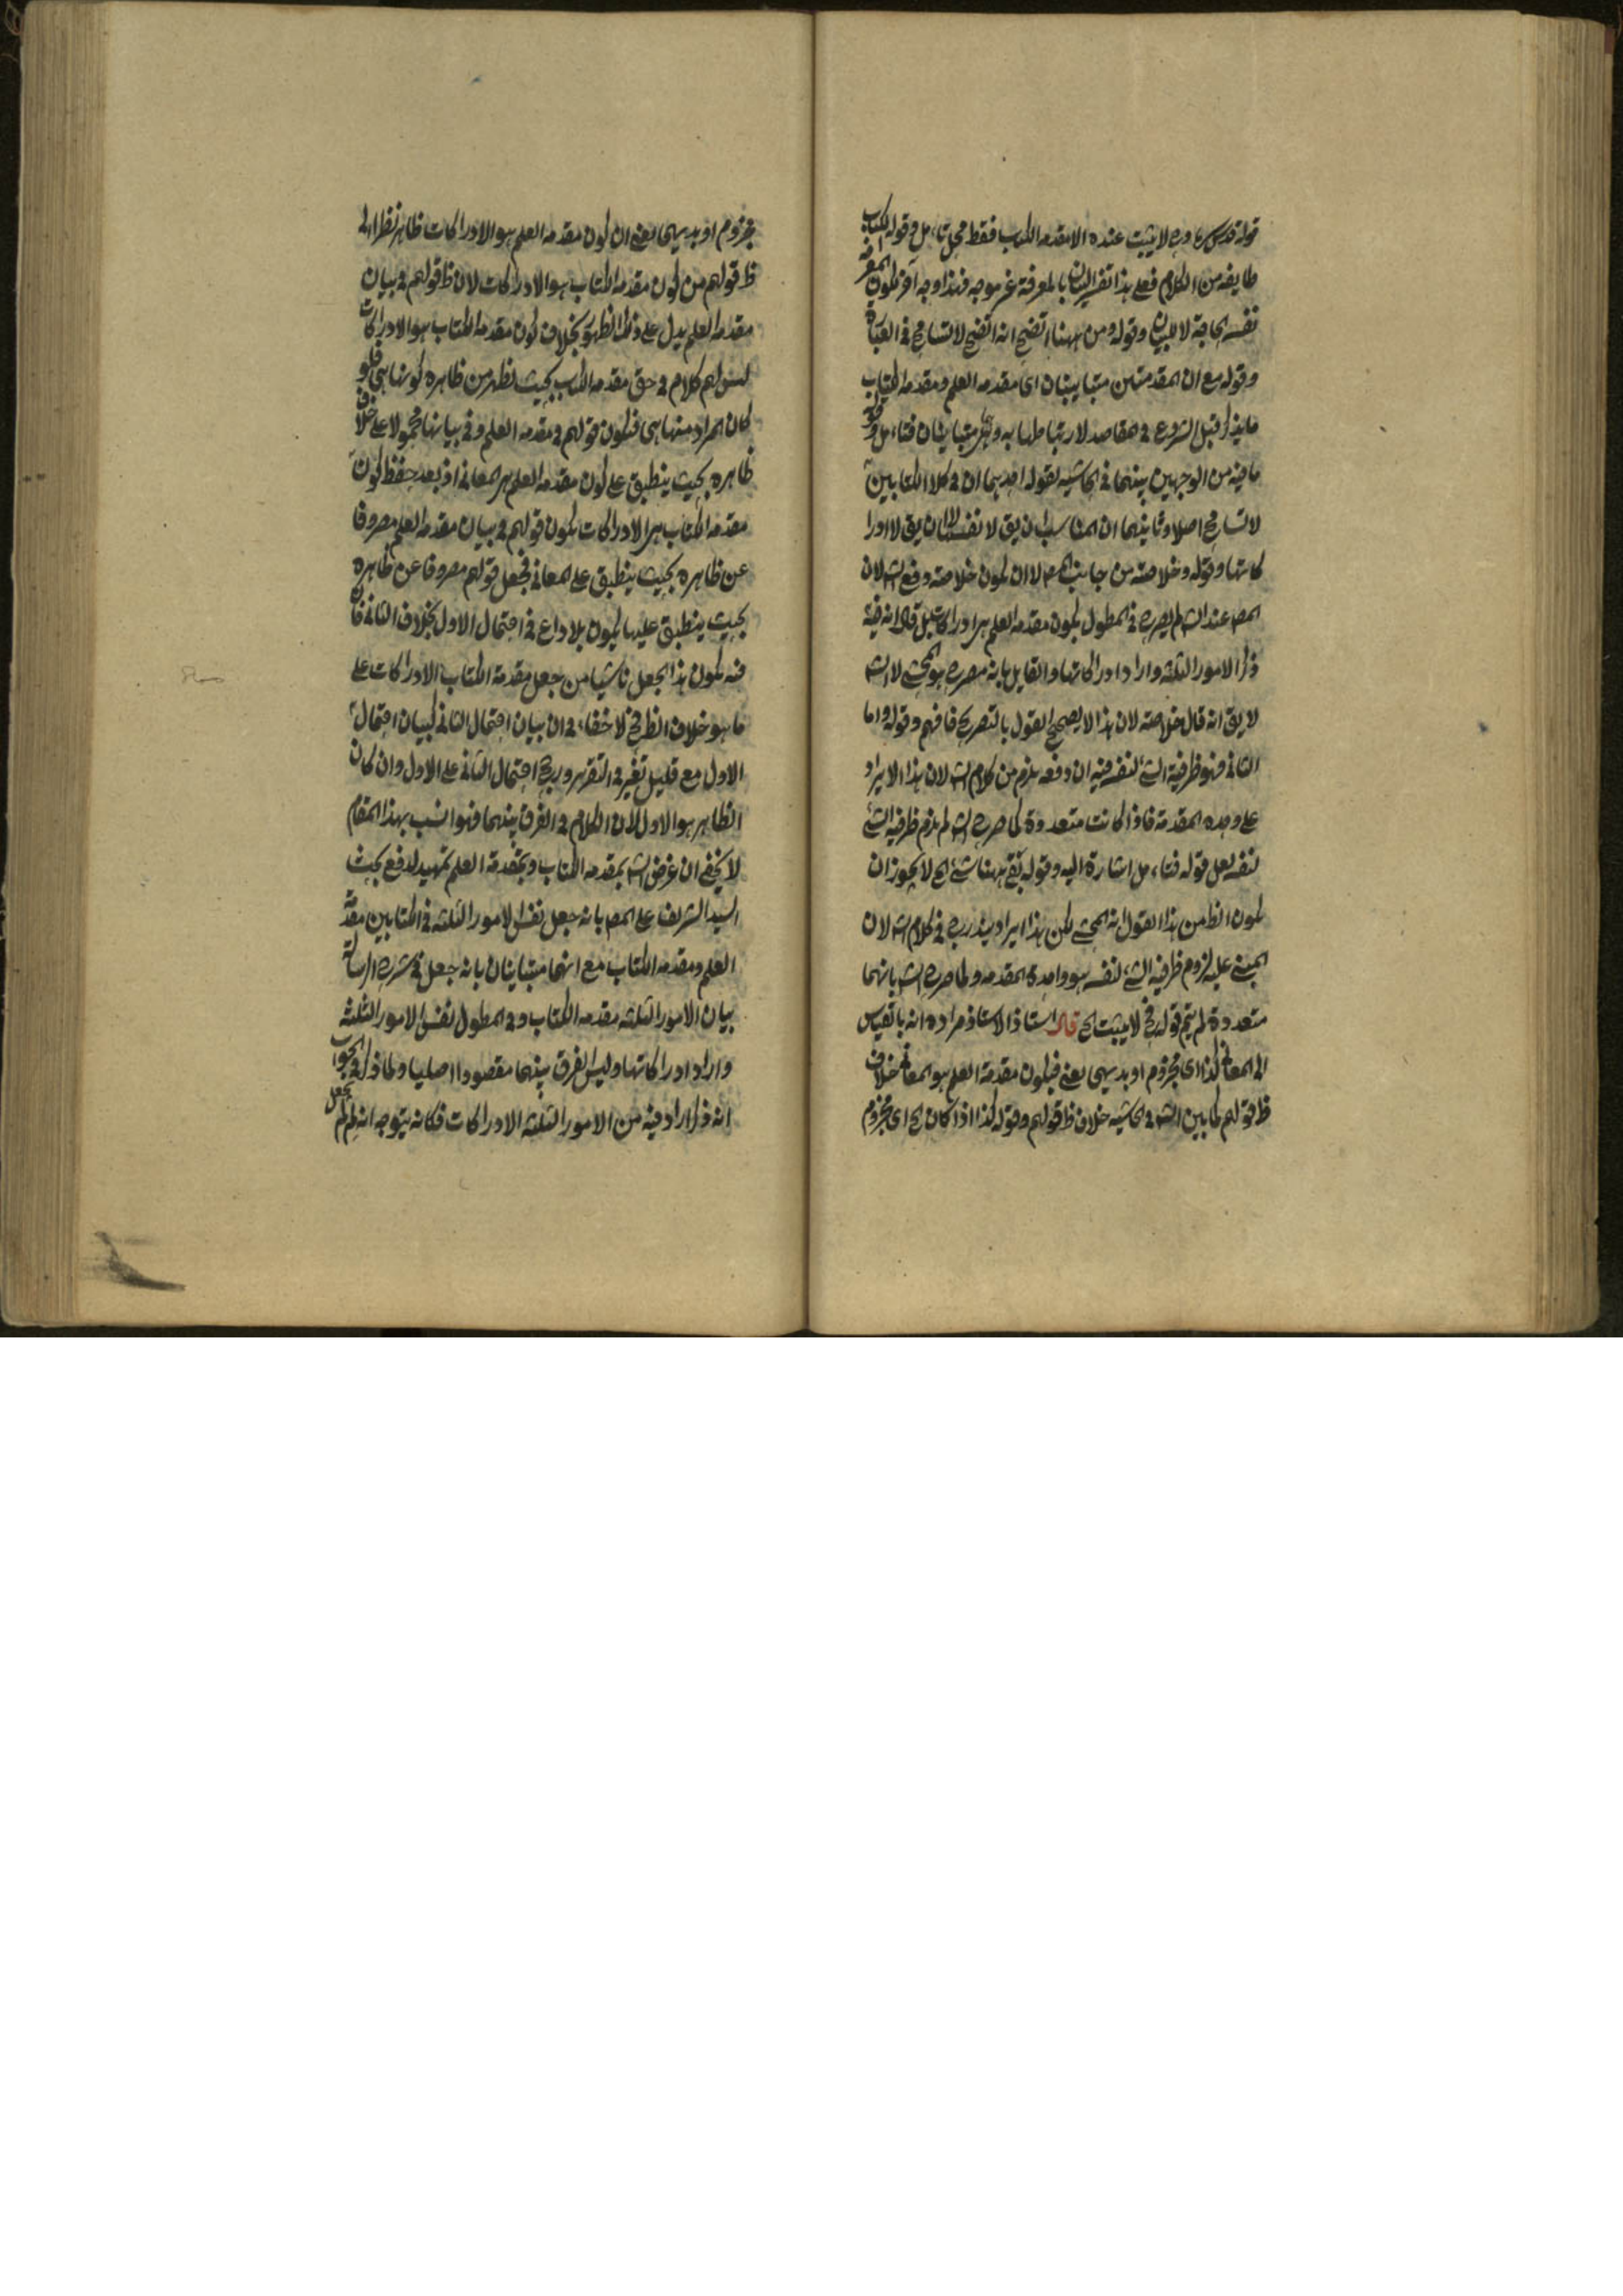 قوله قدس سره ورح لا يثبت عنده الا مقدمه الكتاب فقط محل تامل وقوله الكتاب
طايفه من الكلام فعلى هذا تفسير البيان بالمعرفة غير موجه فهذا وجه آخر لكون المعرفه
نفسه الحاجة لا للبيان وقوله ومن ههنا اتضح انه اتضح لا تسامح فى العبارة
وقوله مع ان المقدمتين متباينان اى مقدمه العلم ومقدمه الكتاب
ما يذكر قبل الشروع فى مقاصد لارتباطها به وهى متباينان فتامل وقوله
ما فيه من الوجهين بينهما فى الحاشيه لقوله احديهما ان فى كلا الكتابين
لا تسامح اصلا وثانيهما ان المناسب ان يق لا نفس لان يق لا ادرا
كاتها وقوله وخلاصته من جانب المص لا ان يكون خلاصته دفع الش لان
المص عند الش لم يصرح فى المطول بكون مقدمه العلم هر ادراكات بل قال انه فيه
ذكر الامور الثلثه واراد ادراكاتها والقايل بانه مصرح هو المحشى لا الش
لا يق انه قال خلاصته لان هذا لا يصحح القول بالتصريح فافهم وقوله واما
الثانى فهو ظرفية الشئ لنفسه فيه ان دفعه يلزم من كلام الش لان هذا الايراد
على وحده المقدمة فاذا كانت متعددة كما صرح الش لم يلزم ظرفيه الشئ
لنفسه لعل قوله فتامل اشارة اليه وقوله بقى ههنا شئ الح لا يجوز ان
يكون الظ من هذا القول انه المحشى لكن هذا ايراد يندرج فى كلام الش لان
المبنى عليه لزوم ظرفيه الشئ لنفسه هو واحدة المقدمه ولما صرح الش بانهما
متعددة لم يتم قوله رح لا يثبت الح قال استاذ الاستاذ مراده انه بالقياس
الى المعانى كذا اى مجزوم او بديهى يعنى فيكون مقدمة العلم هو المعانى خلاف
ظ قولهم كما بين الش فى الحاشيه خلاف ظ قولهم وقوله كذا اذا كان الح اى مجزوم
مجزوم او بديهى يعنى ان كون مقدمه العلم هو الادراكات ظاهر نظرا الى
ظ قولهم من كون مقدمه الكتاب هو الادراكات لان ظ قولهم فى بيان
مقدمه العلم يدل على ذلك الظهور بخلاف كون مقدمه الكتاب هو الادراكات
ليس لهم كلام فى حق مقدمه الكتاب بحيث يظهر من ظاهره كونها هى فلو
كان المراد منها هى فيكون قولهم فى مقدمه العلم وفى بيانها محمولا على خلاف
ظاهره بحيث ينطبق على كون مقدمه العلم هر المعانى اذ بعد حفظ كون
مقدمه الكتاب هر الادراكات يكون قولهم فى بيان مقدمه العلم مصروفا
عن ظاهره بحيث ينطبق على المعانى فجعل قولهم مصروفا عن ظاهره
بحيث ينطبق عليها يكون بلا داع فى احتمال الاول بخلاف الثانى فان
فيه يكون هذا الجعل ناشيا من جعل مقدمة الكتاب الادراكات على
ما هو خلاف الظ رح لا خفاء فى ان بيان احتمال الثانى كبيان احتمال
الاول مع قليل تغير فى التقرير ورجح احتمال الثانى على الاول وان كان
الظاهر هو الاول لان الكلام فى الفرق بينهما فهو انسب بهذا المقام
لا يخفى ان غرض الش بمقدمه الكتاب وبمقدمة العلم تمهيد لدفع بحث
السيد الشريف على المص بانه جعل نفس الامور الثلثه فى الكتابين مقدمة
العلم ومقدمه الكتاب مع انهما متباينان بانه جعل فى شرح الرسالة
بيان الامور الثلثه مقدمه الكتاب وفى المطول نفس الامور الثلثة
واراد ادراكاتها وليس الفرق بينهما مقصودا اصليا ولما ذكر فى الجواب
انه ذكر اراد فيه من الامور الثلثه الادراكات فكانه يتوجه انه لم لم يجعل